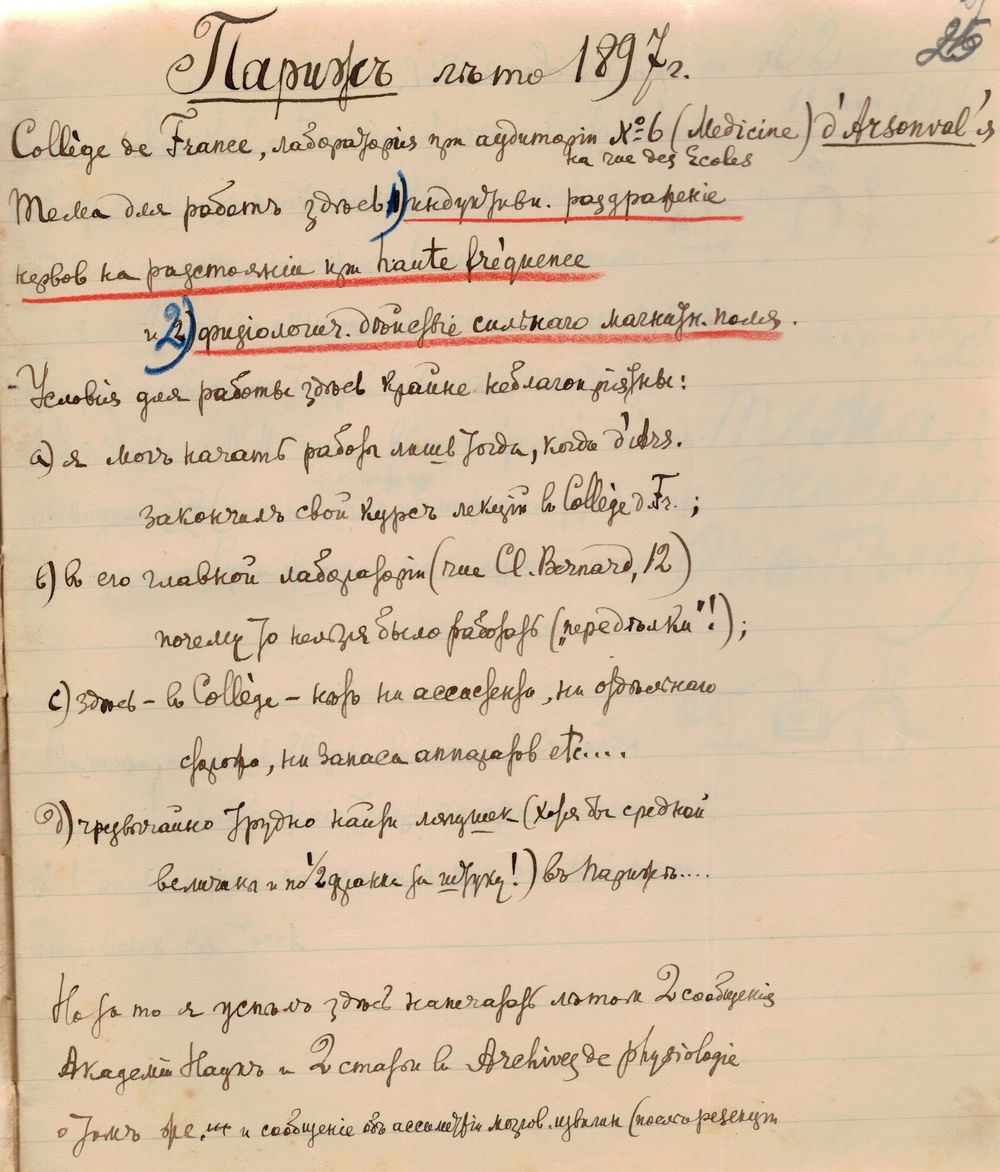 25
Парижъ лѣто 1897 г.
Collège de France, лабораторія при аудиторіи № 6 (Medicine) d'Arsonval'я
на rue des Ecoles
Тема для работъ здѣсь 1) индуктивн. раздраженіе
нервовъ на разстояніи при haute fréquence
и 2) физіологич. дѣйствіе сильнаго магнитн. поля.
Условія для работы здѣсь крайне неблагопріятны:
a) я могъ начать работы лишь тогда, когда d'Ars.
закончилъ свой курсъ лекцій въ Collège d. Fr.;
b) въ его главной лабораторіи (rue Cl. Bernard, 12)
почему то нельзя было работать („передѣлки"!);
c) здѣсь – въ Collège – нѣтъ ни ассистента, ни отдѣльнаго
ни запаса аппаратовъ etc....
d) чрезвычайно трудно найти лягушек (хотя бы средней
величины и по 1/2 франка за штуку!) въ Парижѣ....
Но за то я успѣлъ здѣсь напечатать лѣтом 2 сообщенія
Академіи Наукъ и 2 статьи въ Archives de physiologie
и сообщеніе объ ассиметріи мозгов. извилин (послѣ